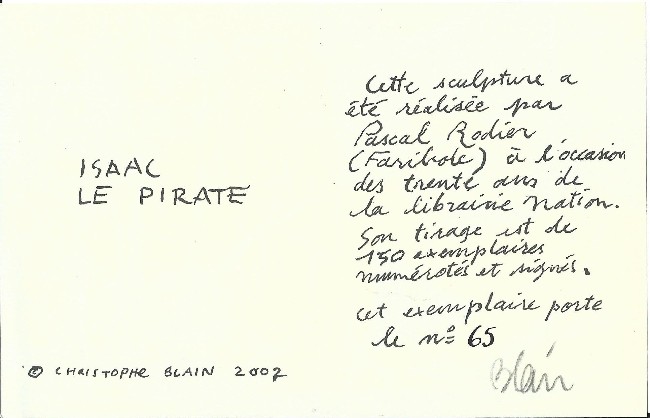 ISAAC
LE PIRATE
© CHRISTOPHE BLAIN 2002
Cette sculpture a
été réalisée par
Pascal Rodier
(Faribole) à l'occasion
des trente ans de
la librairie nation.
Son tirage est de
150 exemplaires
numérotés et signés.
cet exemplaire porte
le nº 65
Blain